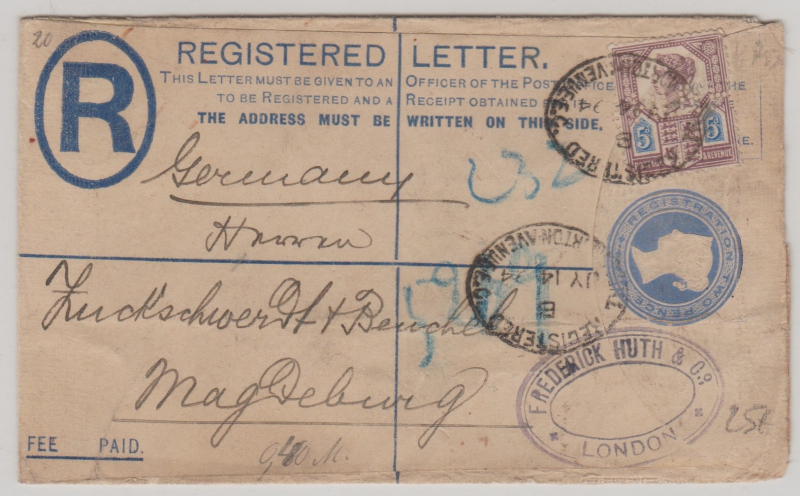 20
R
REGISTERED LETTER.
THIS LETTER MUST BE GIVEN TO AN OFFICER OF THE POST OFFICE THE
TO BE REGISTERED AND A RECEIPT OBTAINED
THE ADDRESS MUST BE WRITTEN ON THIS SIDE.
5d 5d
& REVENUE
REGISTERED
MARTON AVENUE E.C.
Germany
Herren
Zuckschwerdt & Beuchel
Magdeburg
REGISTRATION TWO PENCE
REGISTERED
JY 14 94
MARTON AVENUE E.C.
FREDERICK HUTH & CO.
LONDON
FEE PAID.